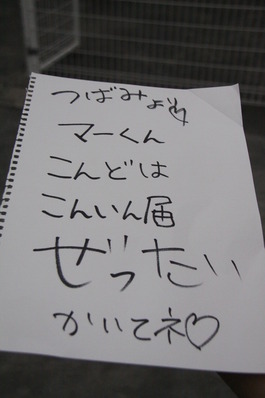 つばみより
マーくん
こんどは
こんいん届
ぜったい
かいてネ♡